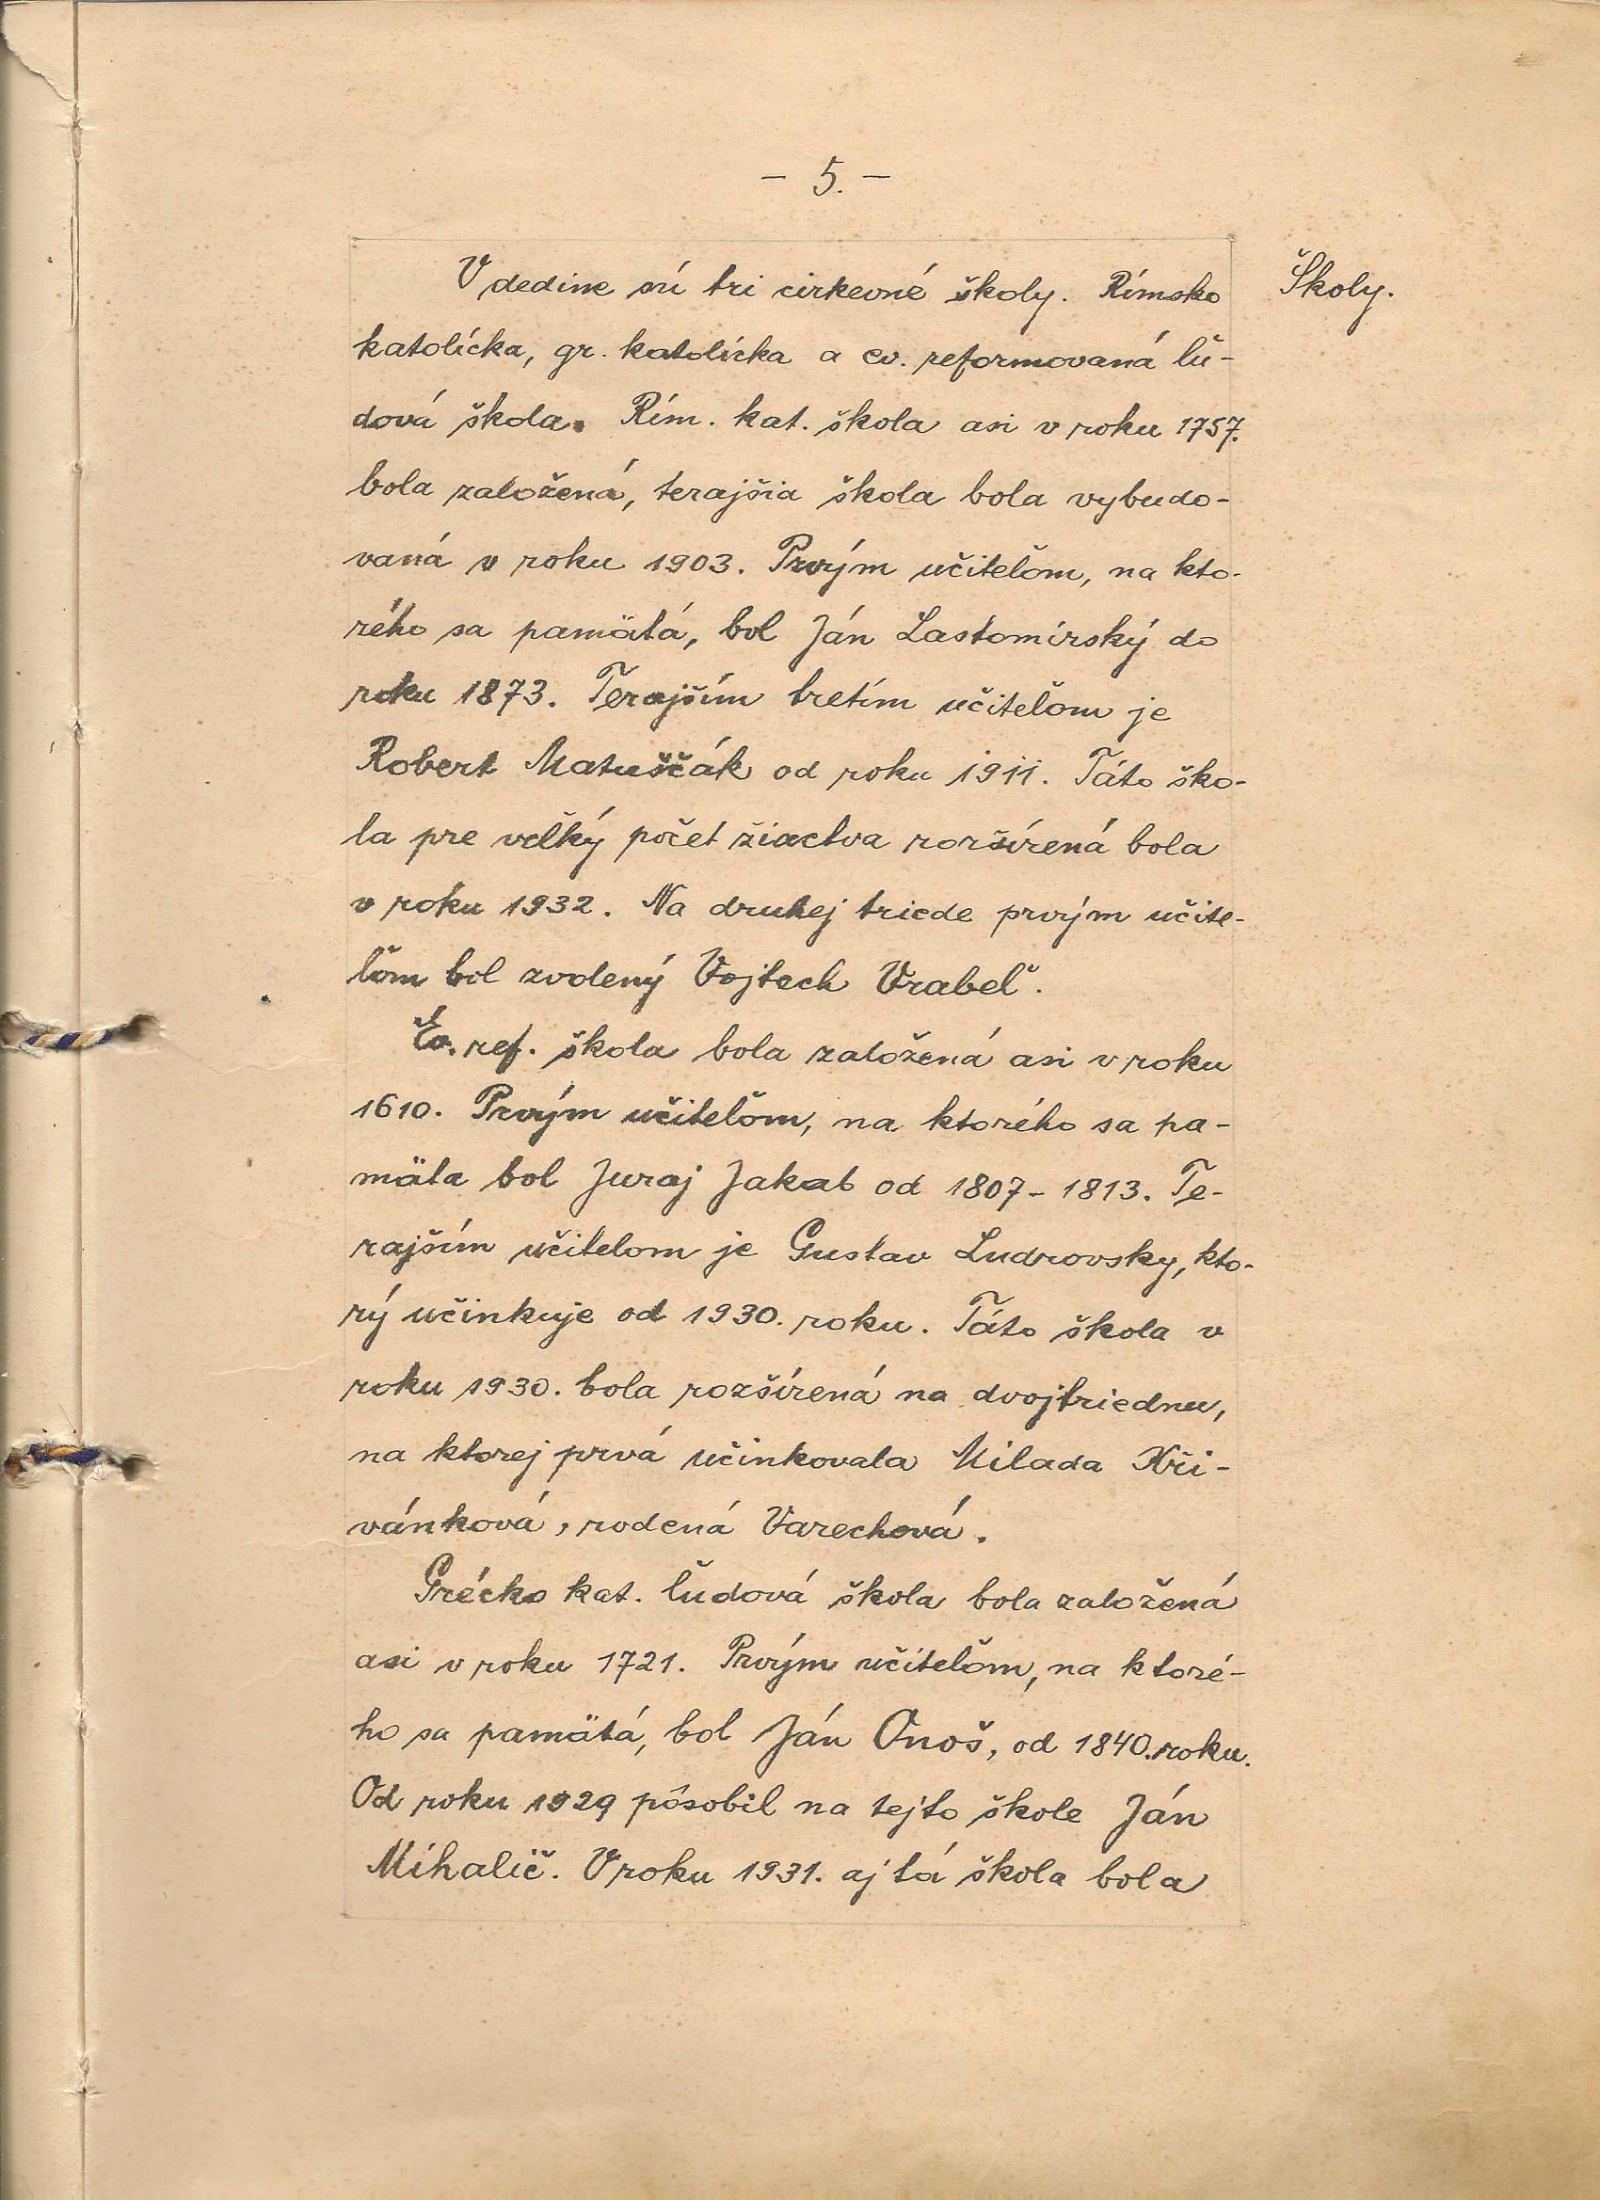 - 5. -
V dedine sú tri cirkevné školy. Rímsko
Školy.
katolícka, gr. katolícka a ev. reformovaná ľu-
dová škola. Rím. kat. škola asi v roku 1757.
bola založená, terajšia škola bola vybudo-
vaná v roku 1903. Prvým učiteľom, na kto-
rého sa pamätá, bol Ján Lastomírský do
roku 1873. Terajším tretím učiteľom je
Robert Matuščák od roku 1911. Táto ško-
la pre veľký počet žiactva rozšírená bola
v roku 1932. Na druhej triede prvým učite-
ľom bol zvolený Vojtech Vrabeľ.
Ev. ref. škola bola založená asi v roku
1610. Prvým učiteľom, na ktorého sa pa-
mäta bol Juraj Jakab od 1807 - 1813. Te-
rajším učitelom je Gustav Ludrovsky, kto-
rý učinkuje od 1930. roku. Táto škola v
roku 1930. bola rozšírená na dvojtriednu,
na ktorej prvá učinkovala Milada Kři-
vánková, rodená Varechová.
Grécko kat. ľudová škola bola založená
asi v roku 1721. Prvým učiteľom, na ktoré-
ho sa pamätá, bol Ján Onoš, od 1840. roku.
Od roku 1929 pôsobil na tejto škole Ján
Mihalič. V roku 1931. aj tá škola bola